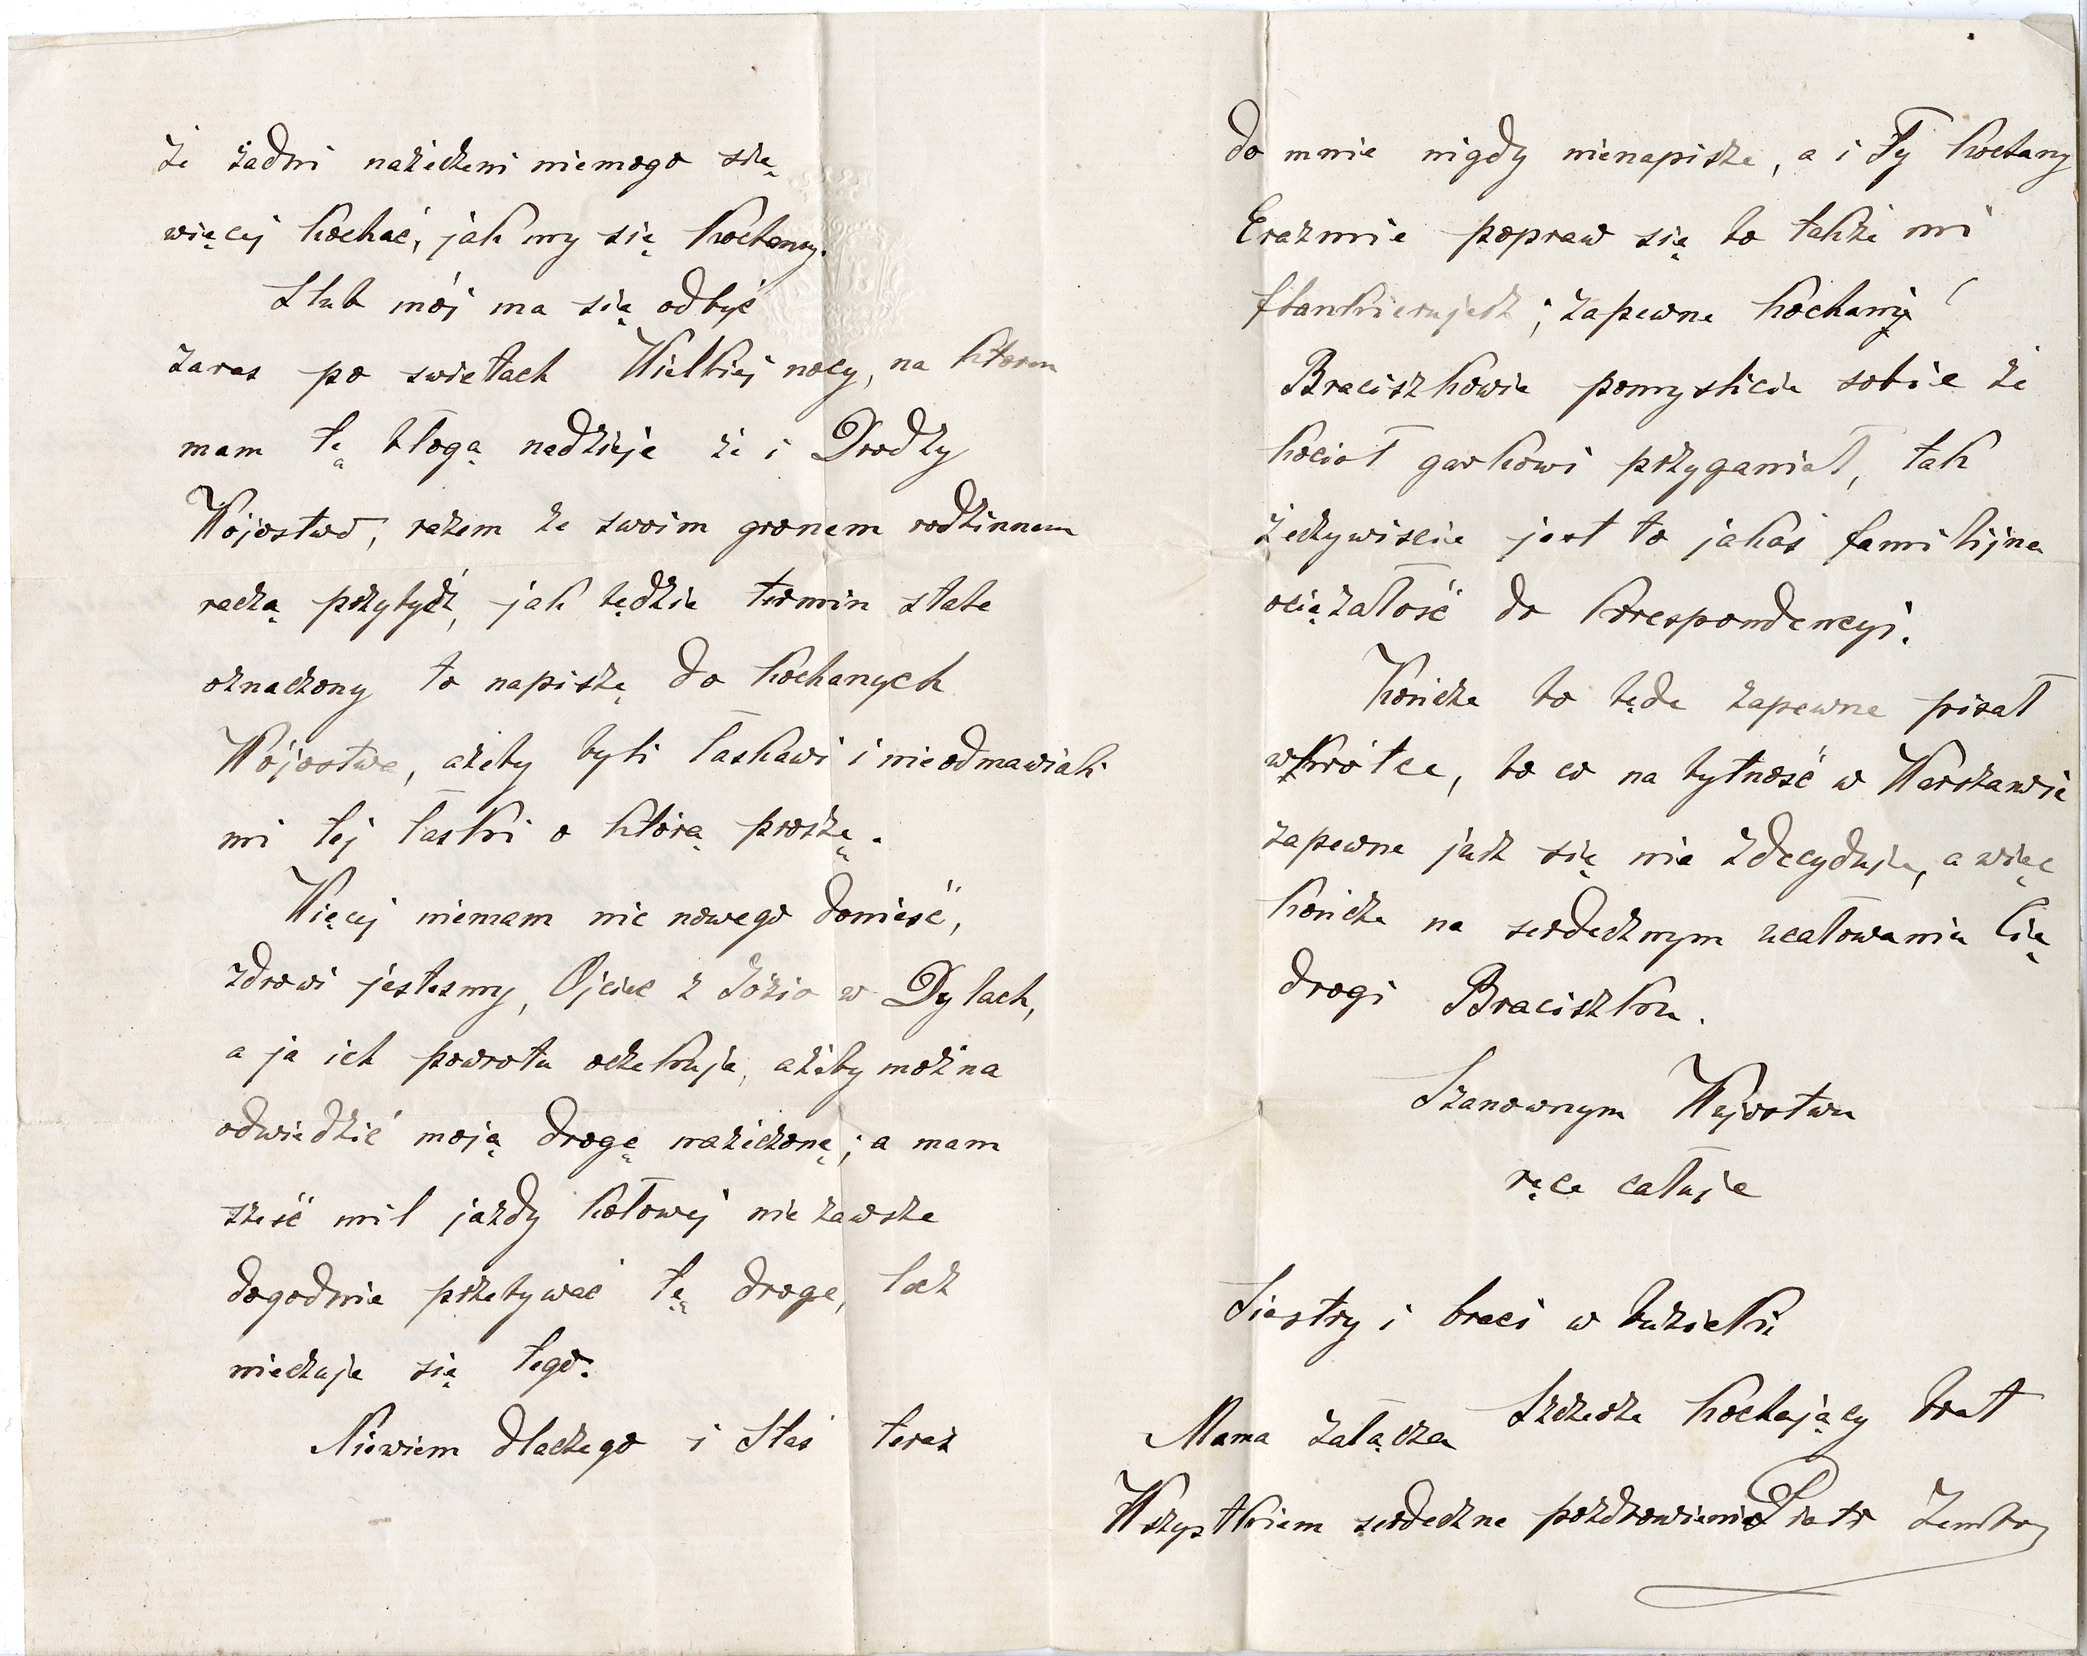 że żadni nażeczeni niemogo się
więcej kochać, jak my się kochamy.
Slub mój ma się odbyć
zaras po swietach Wielkiej nocy, na ktorem
mam tę błogą nadzieje że i Drodzy
Wójostwo, razem ze swoim gronem rodzinnem
raczą pszybydź, jak będzie termin stale
oznaczony to napiszę do kochanych
Wójostwa, ażeby byli łaskawi i nieodmawiali
mi tej łaski o którą proszę.
Więcej niemam nic nowego donieść,
zdrowi jestesmy, Ojciec z Józio w Dylach,
a ja ich powrotu oczekuje, ażeby można
odwiedzić moją drogę nażeczoną; a mam
sześć mil jazdy kołowej nie zawsze
dogodnie pszebywać tę droge, lecz
nieczuje się tego.
Niewiem dlaczego i Staś teraz
do mnie nigdy nienapisze, a i Ty kochany
Erazmie popraw się bo także mi
; zapewne kochani
Braciszkowie pomyslicie sobie że
kocioł garkowi pszyganiał, tak
żeczywiscie jest to jakaś familijna
ociężałość do korespondencyi.
Kończe bo będe zapewne pisał
wkrótce, bo co na bytność w Warszawie
zapewne jusz się nie zdecyduje, a więc
kończe na serdecznym ucałowaniu Cię
drogi Braciszku.
Szanownym Wujostwu
ręce całuje
Siostry i braci w buziaki
Szczeże kochający brat
Mama załącza
Wszystkiem serdeczne pozdrowienie
Piotr